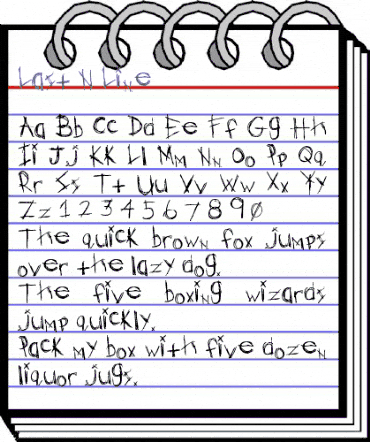 Last N Line
Aa Bb Cc Dd Ee Ff Gg Hh
Ii Jj KK Ll Mm Nn Oo Pp Qq
Rr Ss Tt Uu Vv Ww Xx Yy
Zz 1 2 3 4 5 6 7 8 9 0
The quick brown fox jumps
over the lazy dog.
The five boxing wizards
jump quickly.
Pack my box with five dozen
liquor jugs.